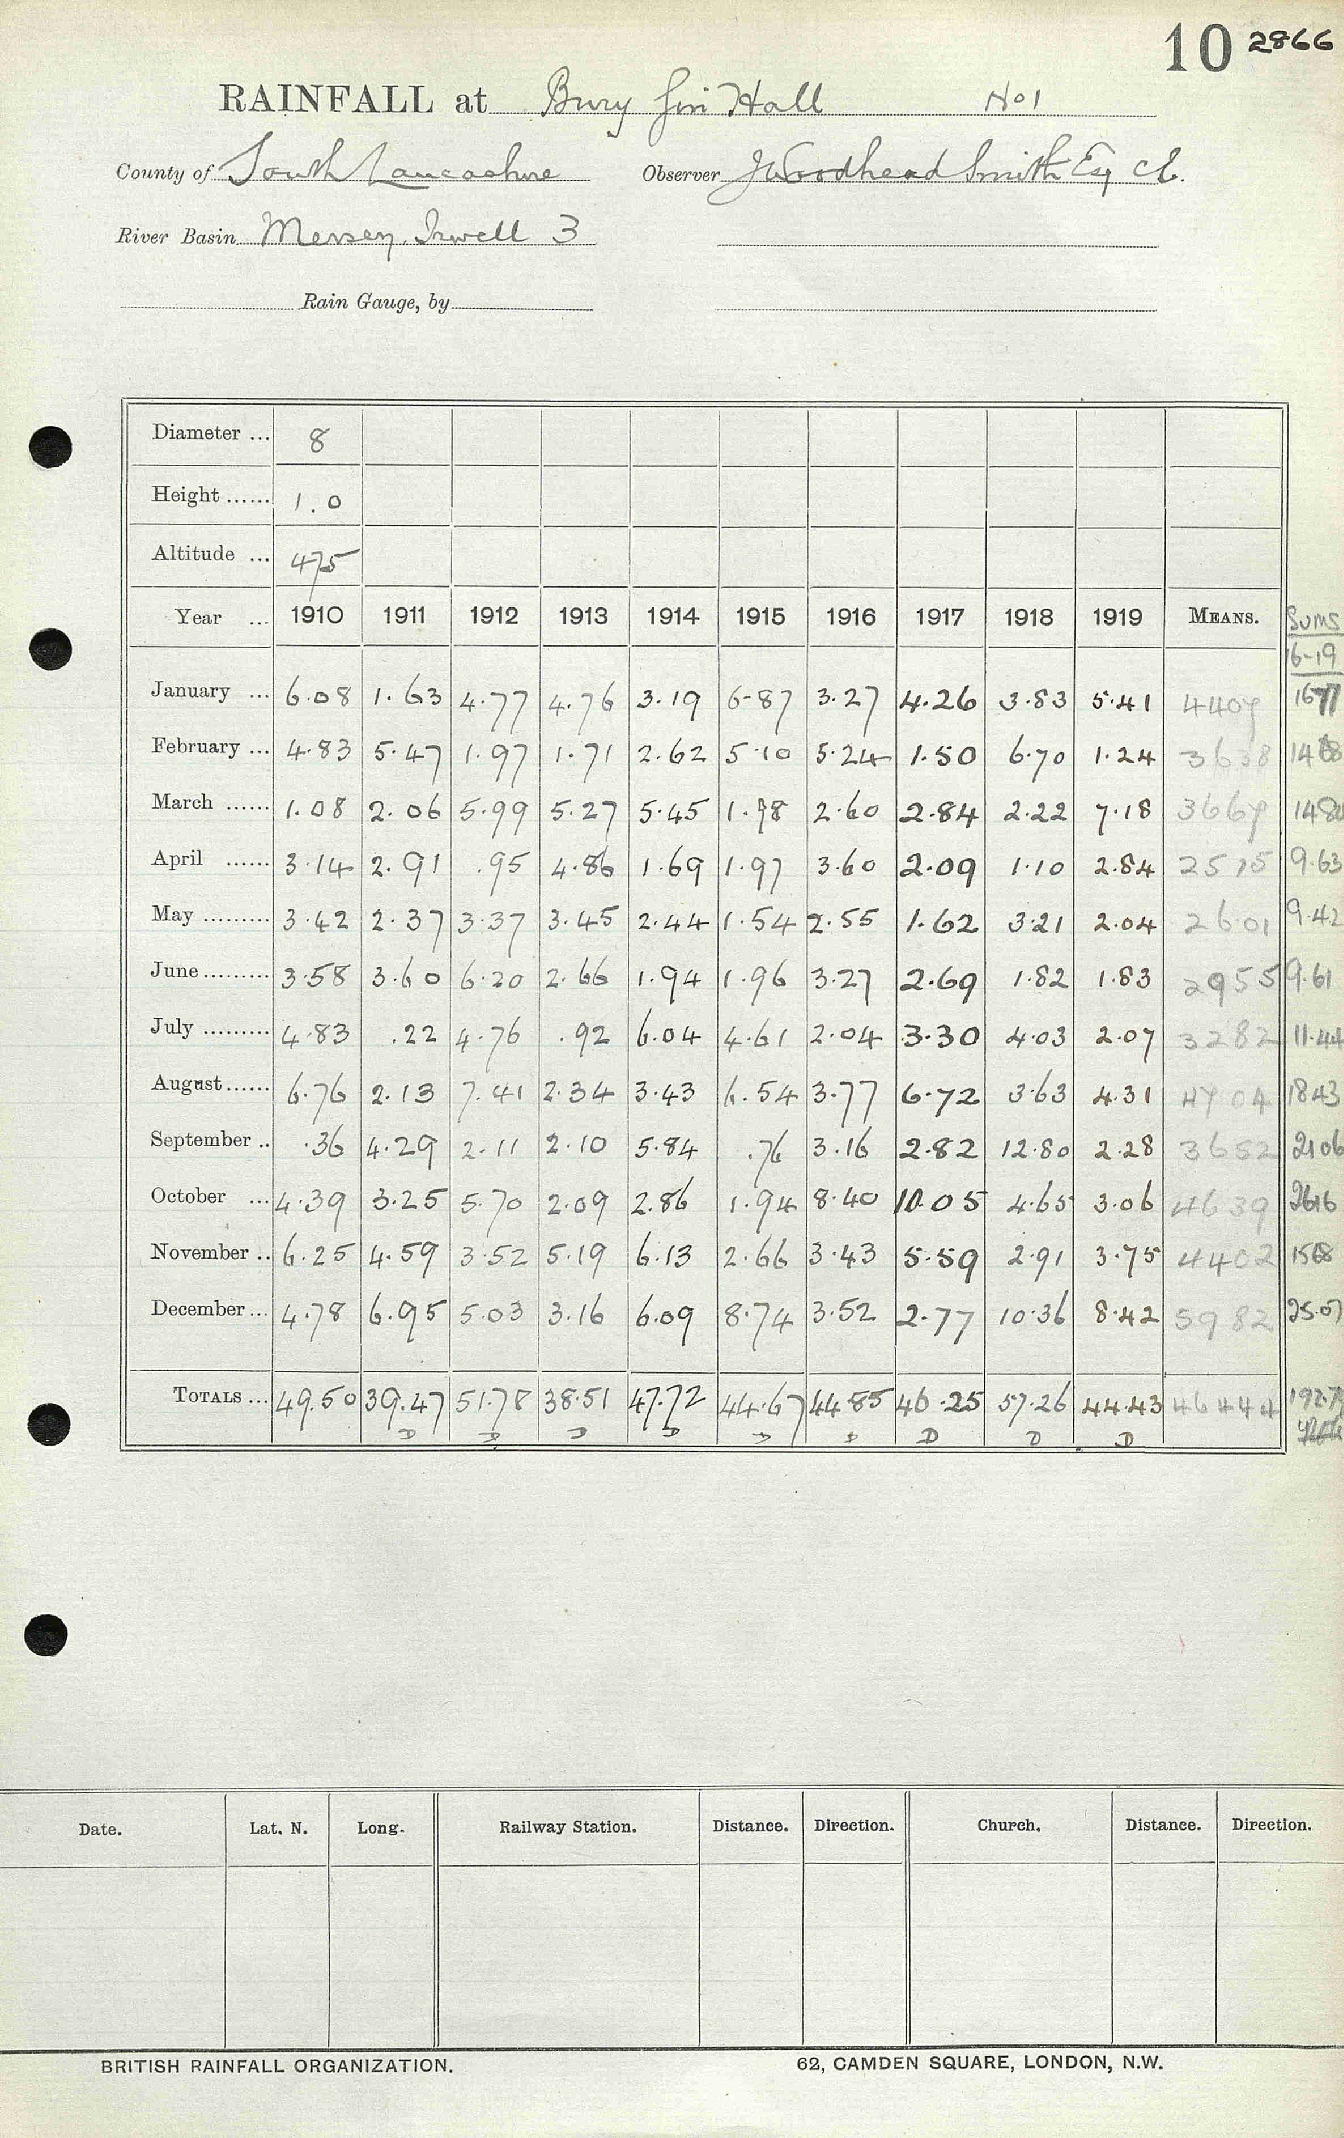 10 2866
RAINFALL at Bury Gin Hall No 1
County of South Lancashire Observer J Woodhead Smith Esq CE.
River Basin Mersey. Irwell 3
Rain Gauge, by
Diameter ... 8
Height ...... 1.0
Altitude ... 475
Year ... 1910 1911 1912 1913 1914 1915 1916 1917 1918 1919 MEANS. Sums
16-19
January ... 6.08 1.63 4.77 4.76 3.19 6.87 3.27 4.26 3.83 5.41 4407 1677
February ... 4.83 5.47 1.97 1.71 2.62 5.10 5.24 1.50 6.70 1.24 3638 1468
March ...... 1.08 2.06 5.99 5.27 5.45 1.98 2.60 2.84 2.22 7.18 3667 1484
April ...... 3.14 2.91 .95 4.86 1.69 1.97 3.60 2.09 1.10 2.84 2515 9.63
May ......... 3.42 2.37 3.37 3.45 2.44 1.54 2.55 1.62 3.21 2.04 2601 9.42
June ......... 3.58 3.60 6.20 2.66 1.94 1.96 3.27 2.69 1.82 1.83 2955 9.61
July ......... 4.83 .22 4.76 .92 6.04 4.61 2.04 3.30 4.03 2.07 3282 11.44
August ...... 6.76 2.13 7.41 2.34 3.43 6.54 3.77 6.72 3.63 4.31 4704 1843
September .. .36 4.29 2.11 2.10 5.84 .76 3.16 2.82 12.80 2.28 3652 2106
October ... 4.39 3.25 5.70 2.09 2.86 1.94 8.40 10.05 4.65 3.06 4639 2616
November .. 6.25 4.59 3.52 5.19 6.13 2.66 3.43 5.59 2.91 3.75 4402 1568
December ... 4.78 6.95 5.03 3.16 6.09 8.74 3.52 2.77 10.36 8.42 5982 25.07
TOTALS ... 49.50 39.47 51.78 38.51 47.72 44.67 44.85 46.25 57.26 44.43 46444 192.79
D D D D D D D D D
Date. Lat. N. Long. Railway Station. Distance. Direction. Church. Distance. Direction.
BRITISH RAINFALL ORGANIZATION. 62, CAMDEN SQUARE, LONDON, N.W.